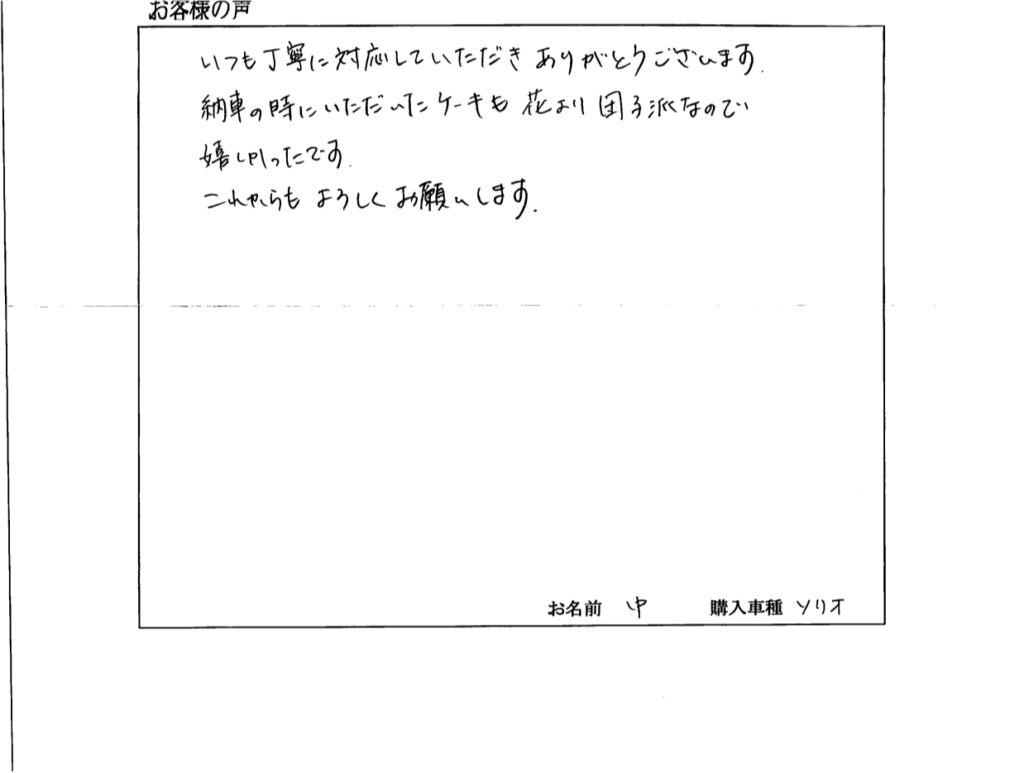 お客様の声
いつも丁寧に対応していただき ありがとうございます.
納車の時にいただいたケーキも 花より 団子派なので
嬉しかったです.
これからも よろしく お願いします.
お名前 中 購入車種 ソリオ